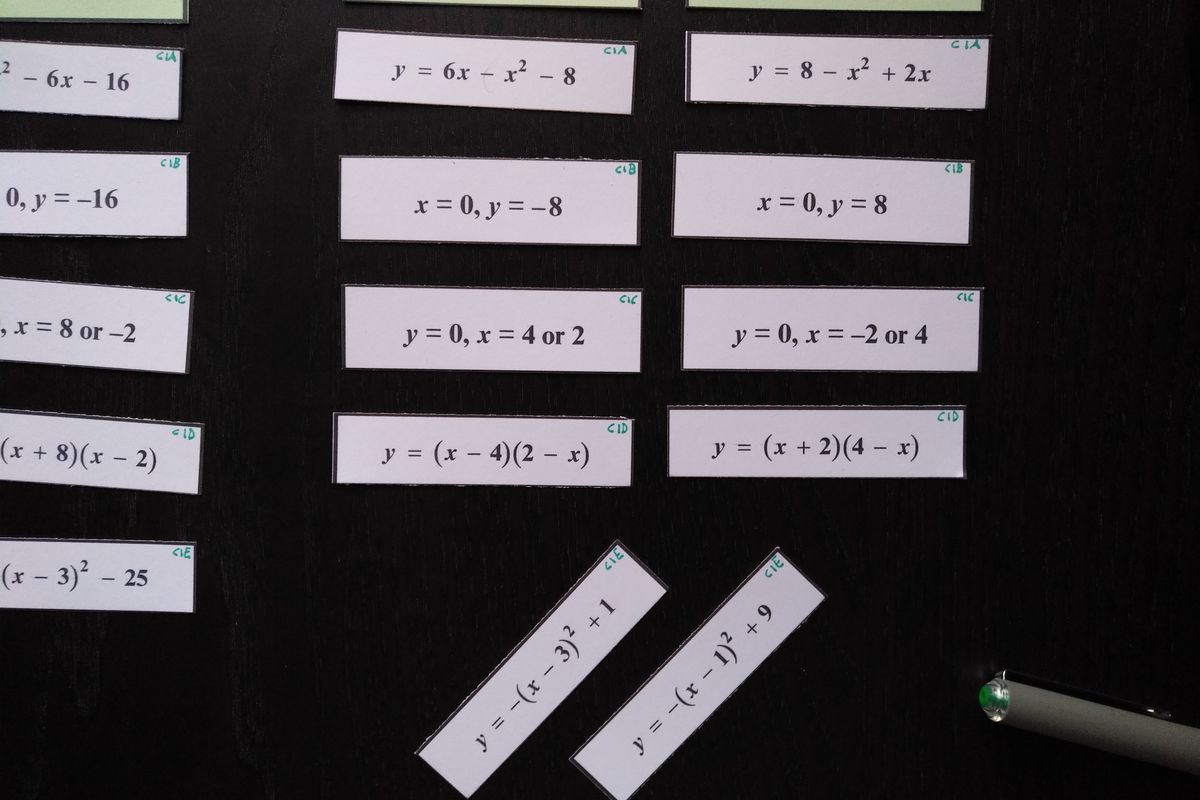 C1A
² − 6x − 16
C1A
y = 6x − x² − 8
C1A
y = 8 − x² + 2x
C1B
0, y = −16
C1B
x = 0, y = −8
C1B
x = 0, y = 8
C1C
, x = 8 or −2
C1C
y = 0, x = 4 or 2
C1C
y = 0, x = −2 or 4
C1D
(x + 8)(x − 2)
C1D
y = (x − 4)(2 − x)
C1D
y = (x + 2)(4 − x)
C1E
(x − 3)² − 25
C1E
y = −(x − 3)² + 1
C1E
y = −(x − 1)² + 9